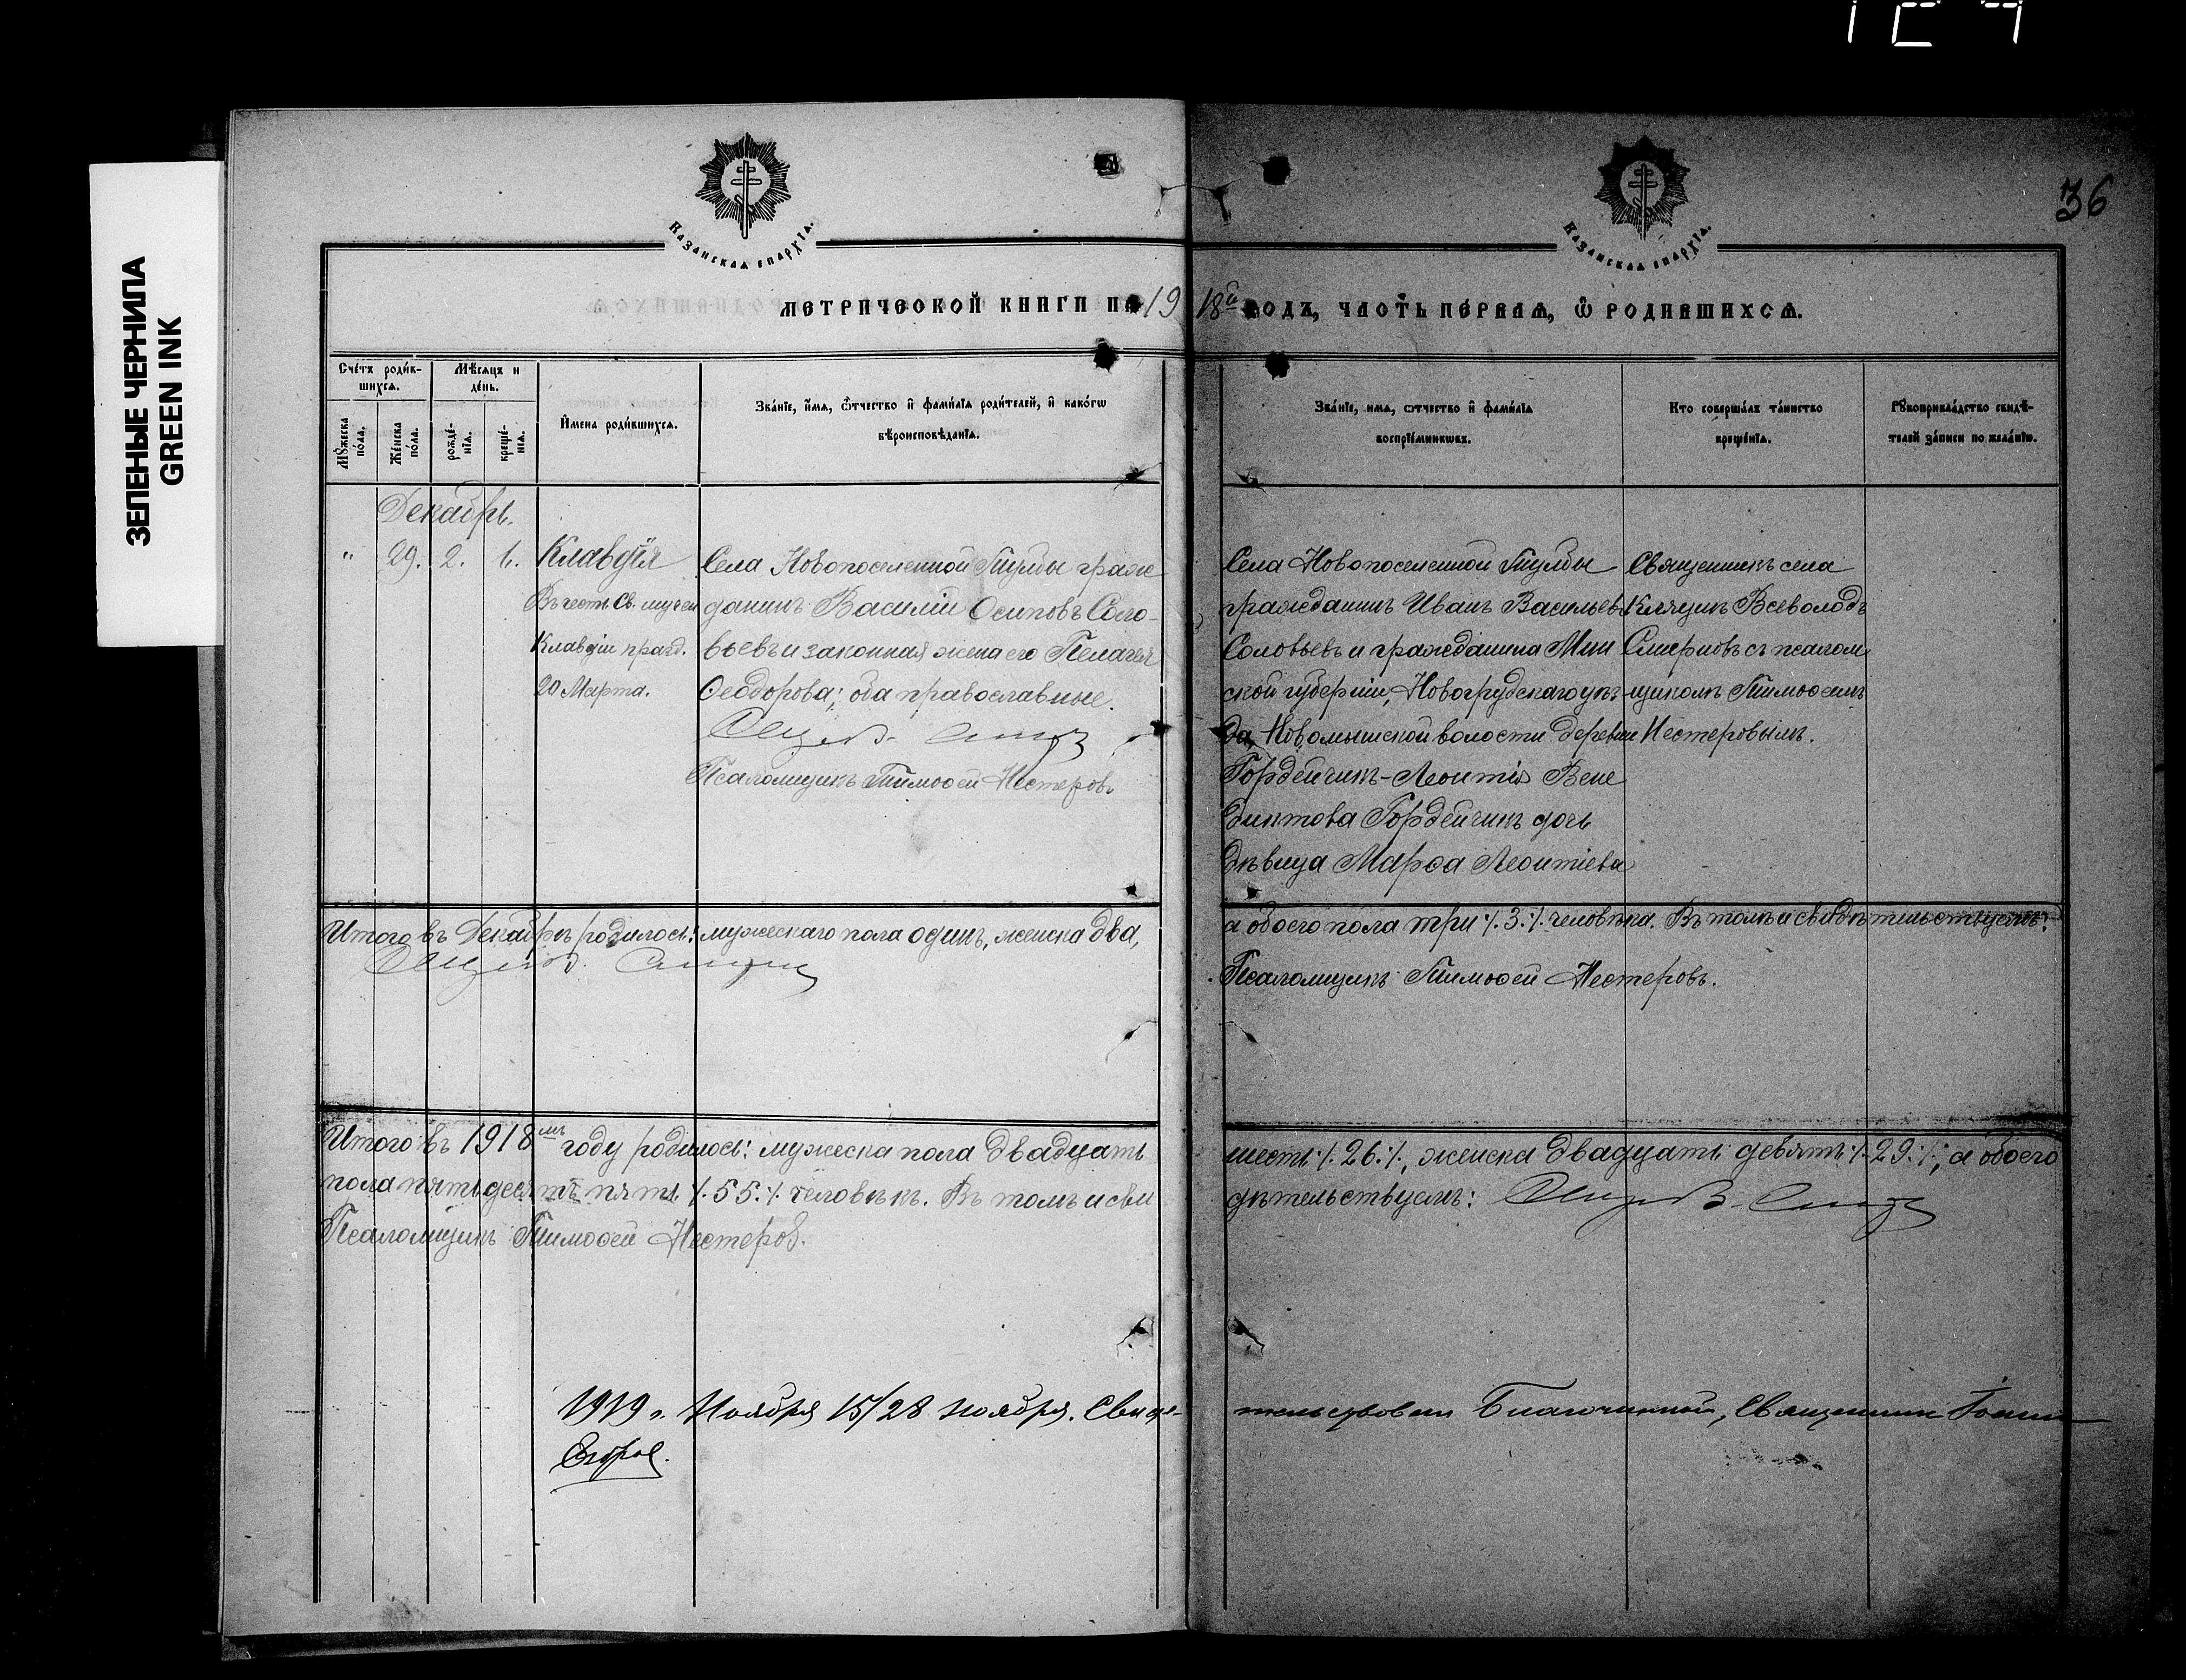 ЗЕЛЕНЫЕ ЧЕРНИЛА
GREEN INK
36
Казанскаѧ епархїѧ.
Казанскаѧ епархїѧ.
метрической книги на 1918й годъ, часть первая, ѽ родившихсѧ.
Счéтъ родив-
шихсѧ.
Мѣсѧцъ и
дéнь.
Мꙋжеска
пóла.
Жéнска
пóла.
рождé-
нїѧ.
креще-
нїѧ.
Имена родившихсѧ.
Звáнїе, имѧ, ѻтчество и фамилїѧ родителей, и какóгѡ
вѣроисповѣданїѧ.
Звáнїе, имѧ, ѻтчество и фамилїѧ
воспрїемникѡвъ.
Кто совершалъ тáинство
крещéнїѧ.
Рꙋкоприклáдство свидѣ-
телей зáписи по желáнїю.
Декабрь.
" 29. 2. 6. Клавдія
Въ честь Св. мучен
Клавдіи празд.
20 Марта.
Села Новопоселенной Тумбы граж
данинъ Василій Осиповъ Соло-
вьевъ и законная жена его Пелагея
Ѳеодорова; оба православные.
Псаломщикъ Тимоѳей Нестеровъ
Села Новопоселенной Тумбы
гражданинъ Иванъ Васильевъ
Соловьевъ и гражданина Мин
ской губерніи, Новогрудскаго уѣз-
да, Новомышской волости деревни
Гордейчикъ-Леонтія Вене
диктова Гордейчикъ дочь
дѣвица Марѳа Леонтіева
Священникъ села
Кляшкъ Всеволодъ
Смирновъ съ псалом
щикомъ Тимоѳеемъ
Нестеровымъ.
Итого въ Декабрѣ родилось: мужескаго пола одинъ, женска два,
а обоего пола три ⁒3⁒ человѣка. Въ томъ и свидѣтельствуемъ:
Псаломщикъ Тимоѳей Нестеровъ.
Итого въ 1918мъ году родилось: мужеска пола двадцать
шесть ⁒26⁒, женска двадцать девять ⁒29⁒, а обоего
пола пятьдесятъ пять ⁒55⁒ человѣкъ. Въ томъ и сви
дѣтельствуемъ:
Псаломщикъ Тимоѳей Нестеровъ.
1919 г. Ноября 15/28 ноября. Свидѣ-
тельствовалъ Благочинный, Священникъ Іоаннъ
Егоров.